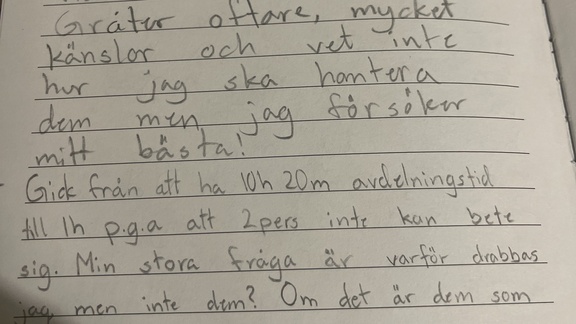 Gråter oftare, mycket
känslor och vet inte
hur jag ska hantera
dem men jag försöker
mitt bästa!
Gick från att ha 10h 20m avdelningstid
till 1h p.g.a att 2pers inte kan bete
sig. Min stora fråga är varför drabbas
jag men inte dem? Om det är dem som